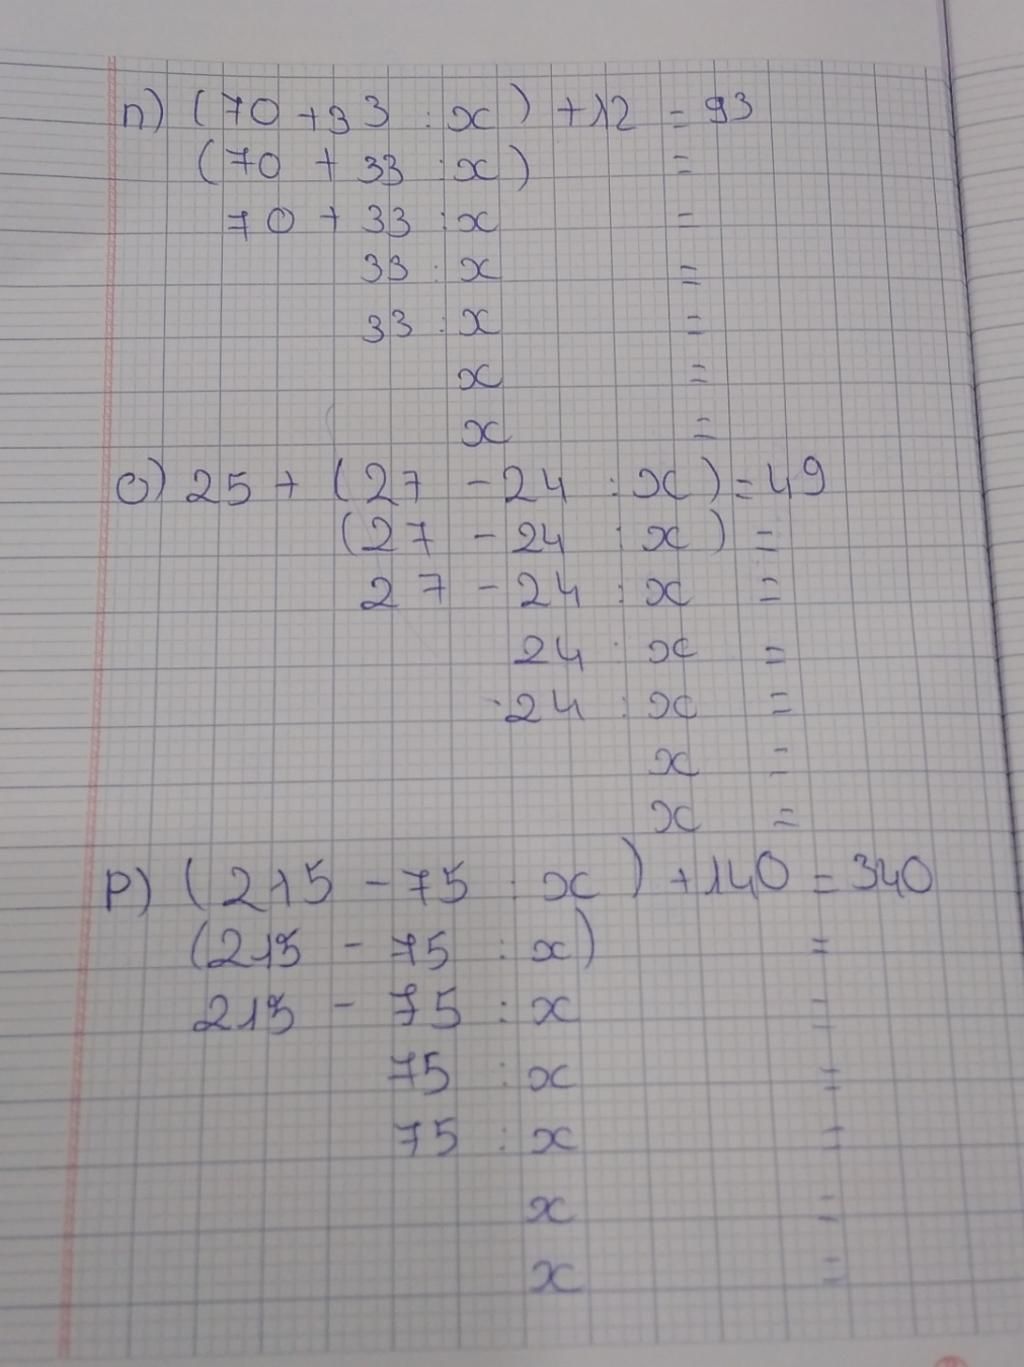 n) (70 + 33 : x) + 12 = 93
(70 + 33 : x) =
70 + 33 : x =
33 : x =
33 : x =
x =
x =
o) 25 + (27 - 24 : x) = 49
(27 - 24 : x) =
27 - 24 : x =
24 : x =
24 : x =
x =
x =
p) (215 - 75 : x) + 140 = 340
(215 - 75 : x) =
215 - 75 : x =
75 : x =
75 : x =
x =
x =